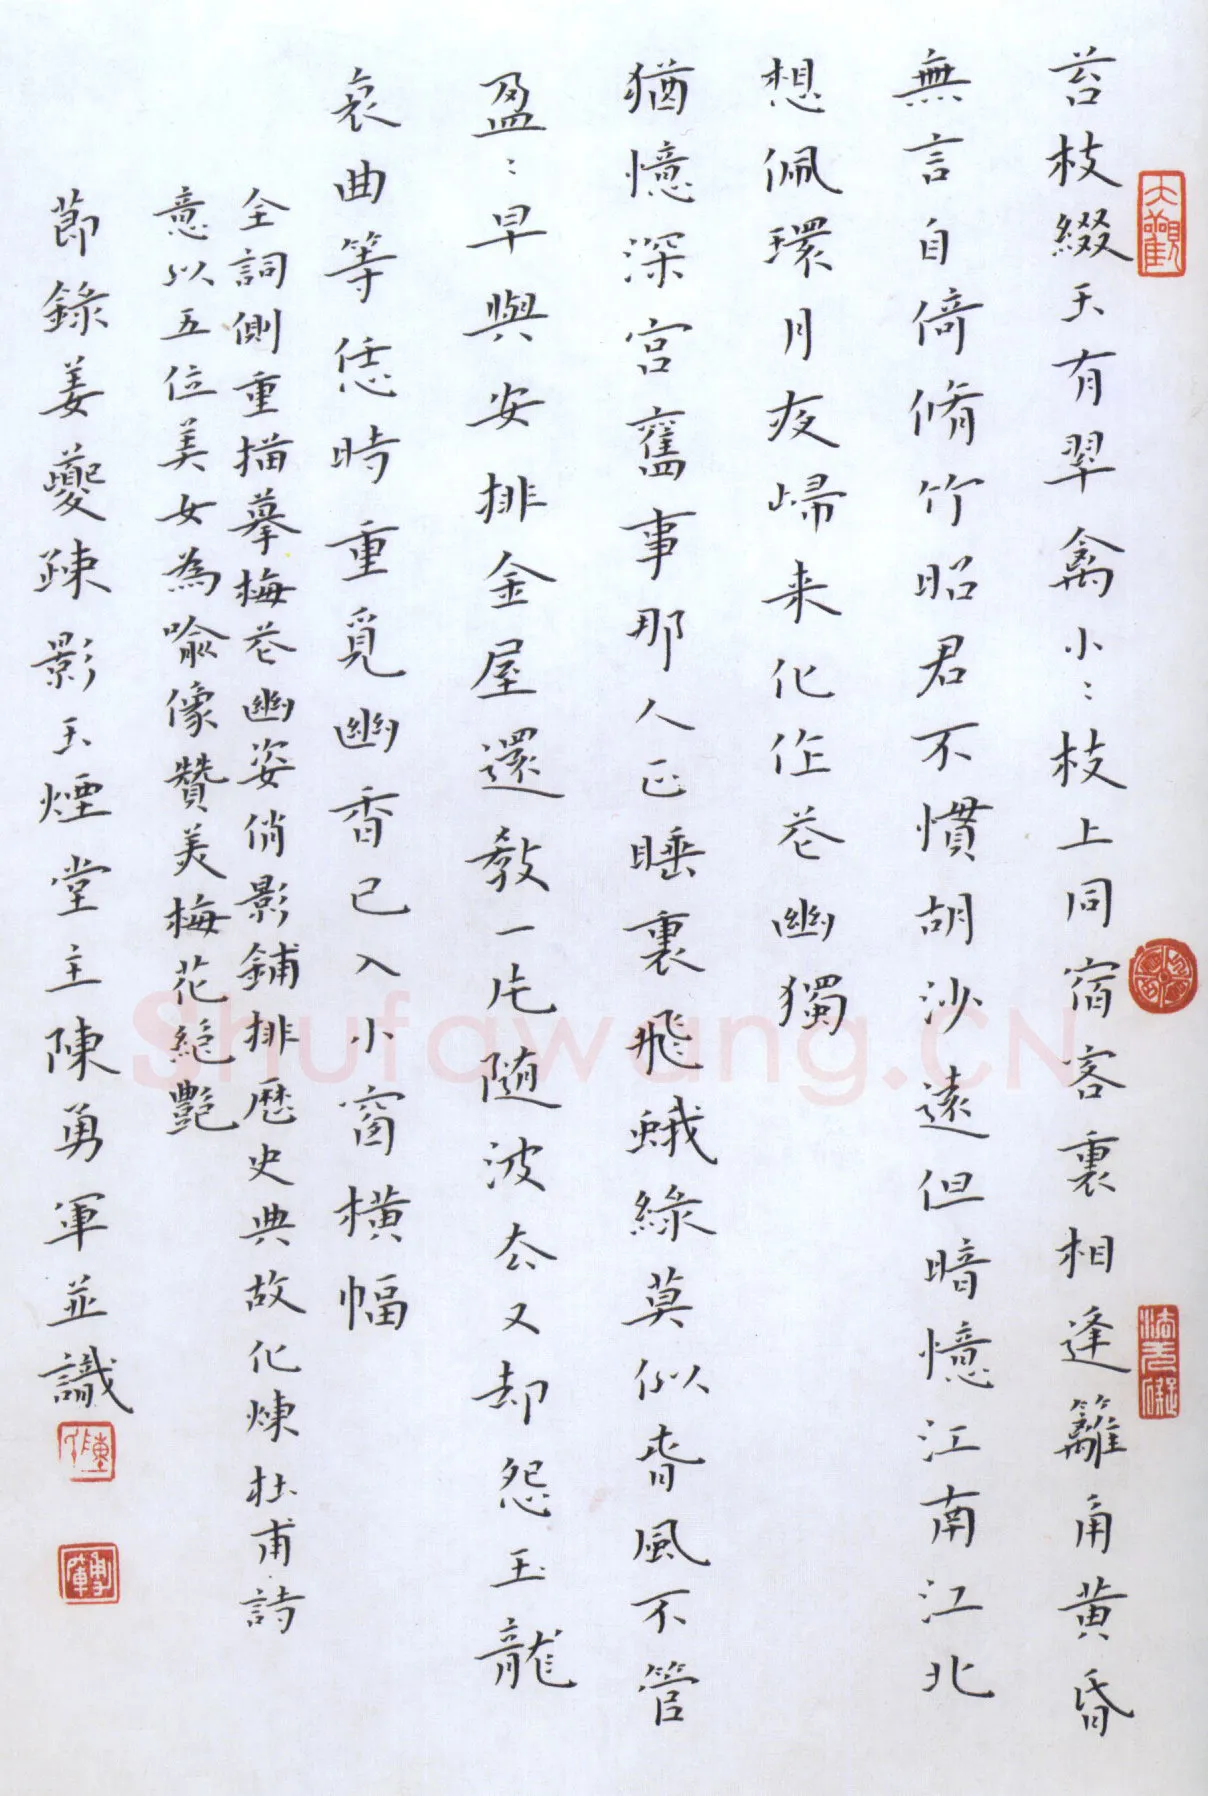 苔枝綴玉有翠禽小〻枝上同宿客裏相逢籬角黄昏
無言自倚脩竹昭君不慣胡沙遠但暗憶江南江北
想佩環月夜歸来化作花幽獨
猶憶深宮舊事那人正睡裏飛蛾綠莫似春風不管
盈〻早與安排金屋還教一片隨波去又却怨玉龍
哀曲等恁時重覓幽香已入小窗橫幅
全詞側重描摹梅花幽姿俏影鋪排歷史典故化煉杜甫詩
意以五位美女為喻像贊美梅花絕艷
節錄姜夔疎影玉煙堂主陳勇軍並識
大觀
陳
勇軍
Shufawang.CN